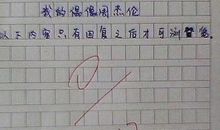 我的偶像周杰伦
以下内容只有回复之后才可浏覽。